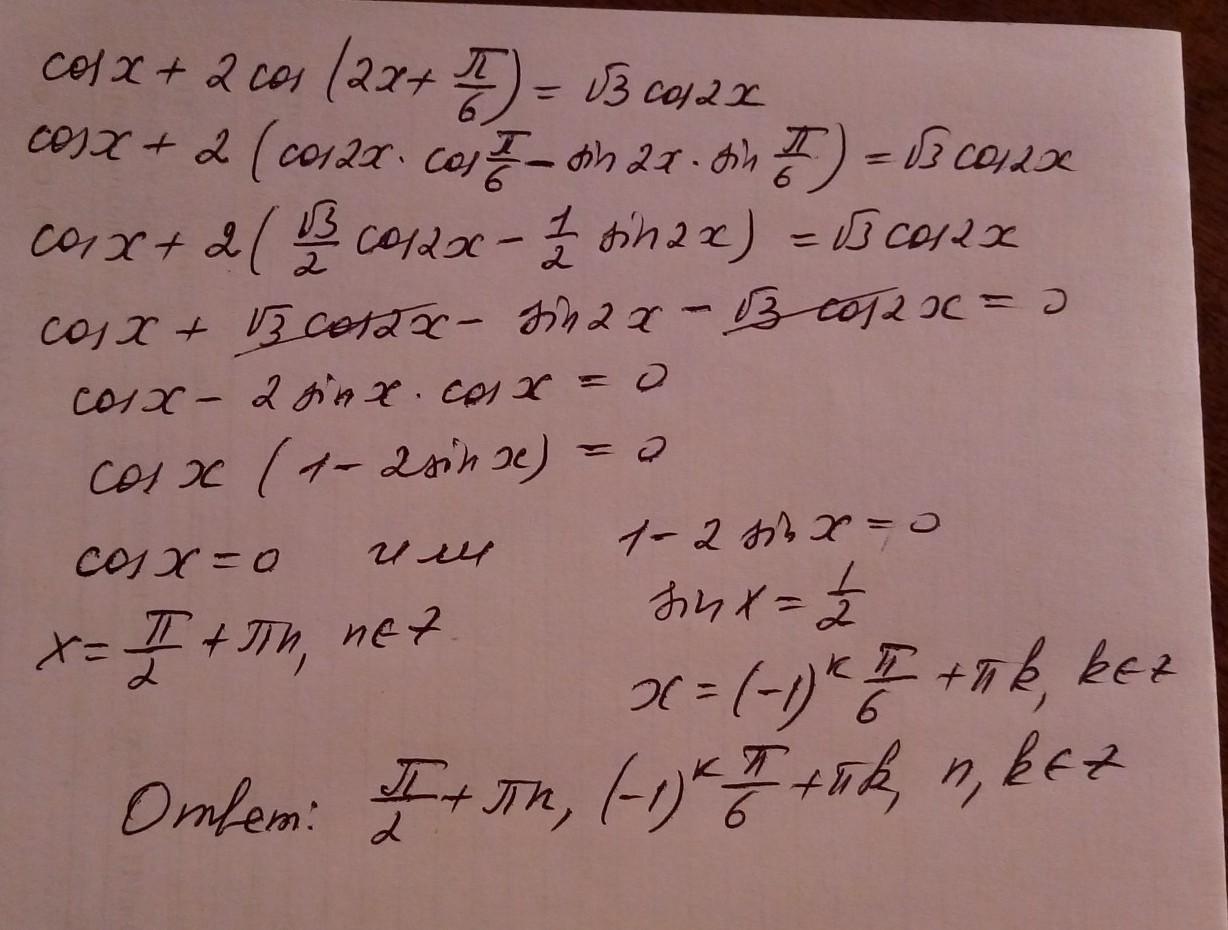 cos x + 2 cos (2x + π/6) = √3 cos 2x
cos x + 2 (cos 2x · cos π/6 − sin 2x · sin π/6) = √3 cos 2x
cos x + 2 (√3/2 cos 2x − 1/2 sin 2x) = √3 cos 2x
cos x + √3 cos 2x − sin 2x − √3 cos 2x = 0
cos x − 2 sin x · cos x = 0
cos x (1 − 2 sin x) = 0
cos x = 0 или 1 − 2 sin x = 0
sin x = 1/2
x = π/2 + πn, n ∈ Z
x = (−1)^k π/6 + πk, k ∈ Z
Ответ: π/2 + πn, (−1)^k π/6 + πk, n, k ∈ Z